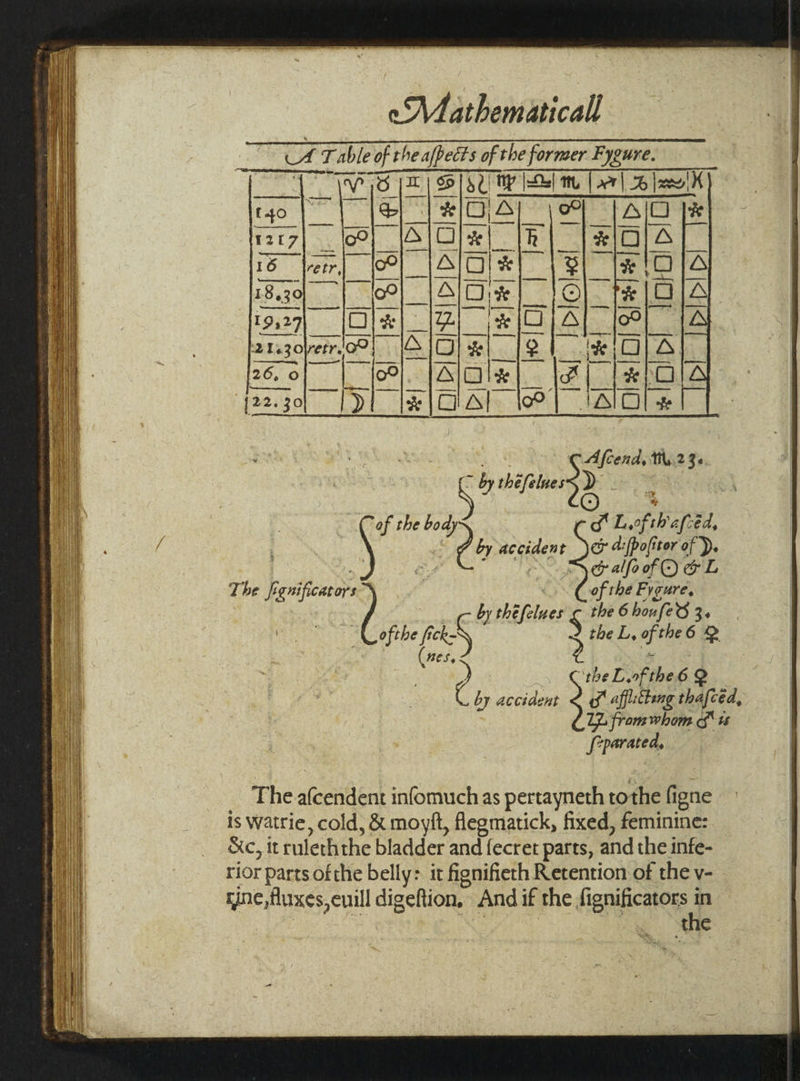 Mathematicall
A Table of the aſpects of the former Fygure.
♈ ♉ ♊ ♋ ♌ ♍ ♎ ♏ ♐ ♑ ♒ ♓
140 ⊕ ⚹ □ △ ☍ △ □ ⚹
1217 ☍ △ □ ⚹ ♄ ⚹ □ △
16 retr. ☍ △ □ ⚹ ☿ ⚹ □ △
18.30 ☍ △ □ ⚹ ☉ ⚹ □ △
19,27 □ ⚹ ♃ ⚹ □ △ ☍ △
21.30 retr. ☍ △ □ ⚹ ♀ ⚹ □ △
26. 0 ☍ △ □ ⚹ ♂ ⚹ □ △
22.30 ☽ ⚹ □ △ ☍ △ □ ⚹
Aſcend. ♏ 23.
by theſelues ☽
☉
of the body ♂ L. of th'aſced.
by accident & diſpoſitor of ☽.
& alſo of ☉ & L
The ſignificators of the Fygure.
by theſelues the 6 houſe ♉ 3.
of the ſick- the L. of the 6 ♀
(nes.
the L. of the 6 ♀
by accident ♂ afflicting thaſced.
♃ from whom ♂ is
ſeparated.
The aſcendent inſomuch as pertayneth to the ſigne
is watrie, cold, & moyſt, flegmatick, fixed, feminine:
&c, it ruleth the bladder and ſecret parts, and the infe-
rior parts of the belly: it ſignifieth Retention of the v-
rine, fluxes, euill digeſtion. And if the ſignificators in
the